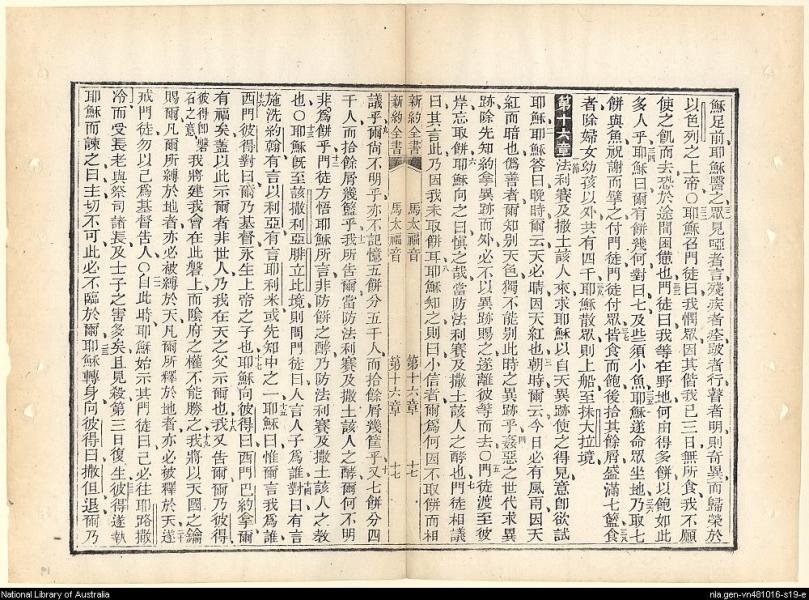 穌足前耶穌醫之眾見啞者言殘疾者痊跛者行瞽者明則奇異而歸榮於
以色列之上帝〇耶穌召門徒曰我憫眾因其偕我已三日無所食我不願
使之飢而去恐於途間困憊也門徒曰我等在野地何由得多餅以飽如此
多人乎耶穌曰爾有餅幾何對曰七及些須小魚耶穌遂命眾坐地乃取七
餅與魚祝謝而擘之付門徒門徒付眾皆食而飽後拾其餘屑盛滿七籃食
者除婦女幼孩以外共有四千耶穌散眾則上船至抹大拉境
第十六章 法利賽及撒土該人來求耶穌以自天異跡使之得見意卽欲試
耶穌耶穌答曰晚時爾云天必晴因天紅也朝時爾云今日必有風雨因天
紅而暗也僞善者爾知別天色獨不能別此時之異跡乎姦惡之世代求異
跡除先知約拿異跡而外必不以異跡賜之遂離彼等而去〇門徒渡至彼
岸忘取餅耶穌向之曰慎之哉當防法利賽及撒土該人之酵也門徒相議
曰其言此乃因我未取餅耳耶穌知之則曰小信者爾爲何因不取餅而相
新約全書 馬太福音 第十六章 十七
新約全書 馬太福音 第十六章 十七
議乎爾尙不明乎亦不記憶五餅分五千人而拾餘屑幾筐乎又七餅分四
千人而拾餘屑幾籃乎我所告爾當防法利賽及撒土該人之酵爾何不明
非爲餅乎門徒方悟耶穌所言非防餅之酵乃防法利賽及撒土該人之敎
也〇耶穌旣至該撒利亞腓立此境則問門徒曰人言人子爲誰對曰有言
施洗約翰有言以利亞有言耶利米或先知中之一耶穌曰惟爾言我爲誰
西門彼得對曰爾乃基督永生上帝之子也耶穌向彼得曰西門巴約拿爾
有福矣蓋以此示爾者非世人乃我在天之父示爾也我又告爾爾乃彼得
彼得卽磐石之意 我將建我會在此磐上而陰府之權不能勝之我將以天國之鑰
賜爾凡爾所縛於地者亦必被縛於天凡爾所釋於地者亦必被釋於天遂
戒門徒勿以己爲基督告人〇自此時耶穌始示其門徒曰己必往耶路撒
冷而受長老與祭司諸長及士子之害多矣且見殺第三日復生彼得遂執
耶穌而諫之曰主切不可此必不臨於爾耶穌轉身向彼得曰撒但退爾乃
National Library of Australia
nla.gen-vn481016-s19-e